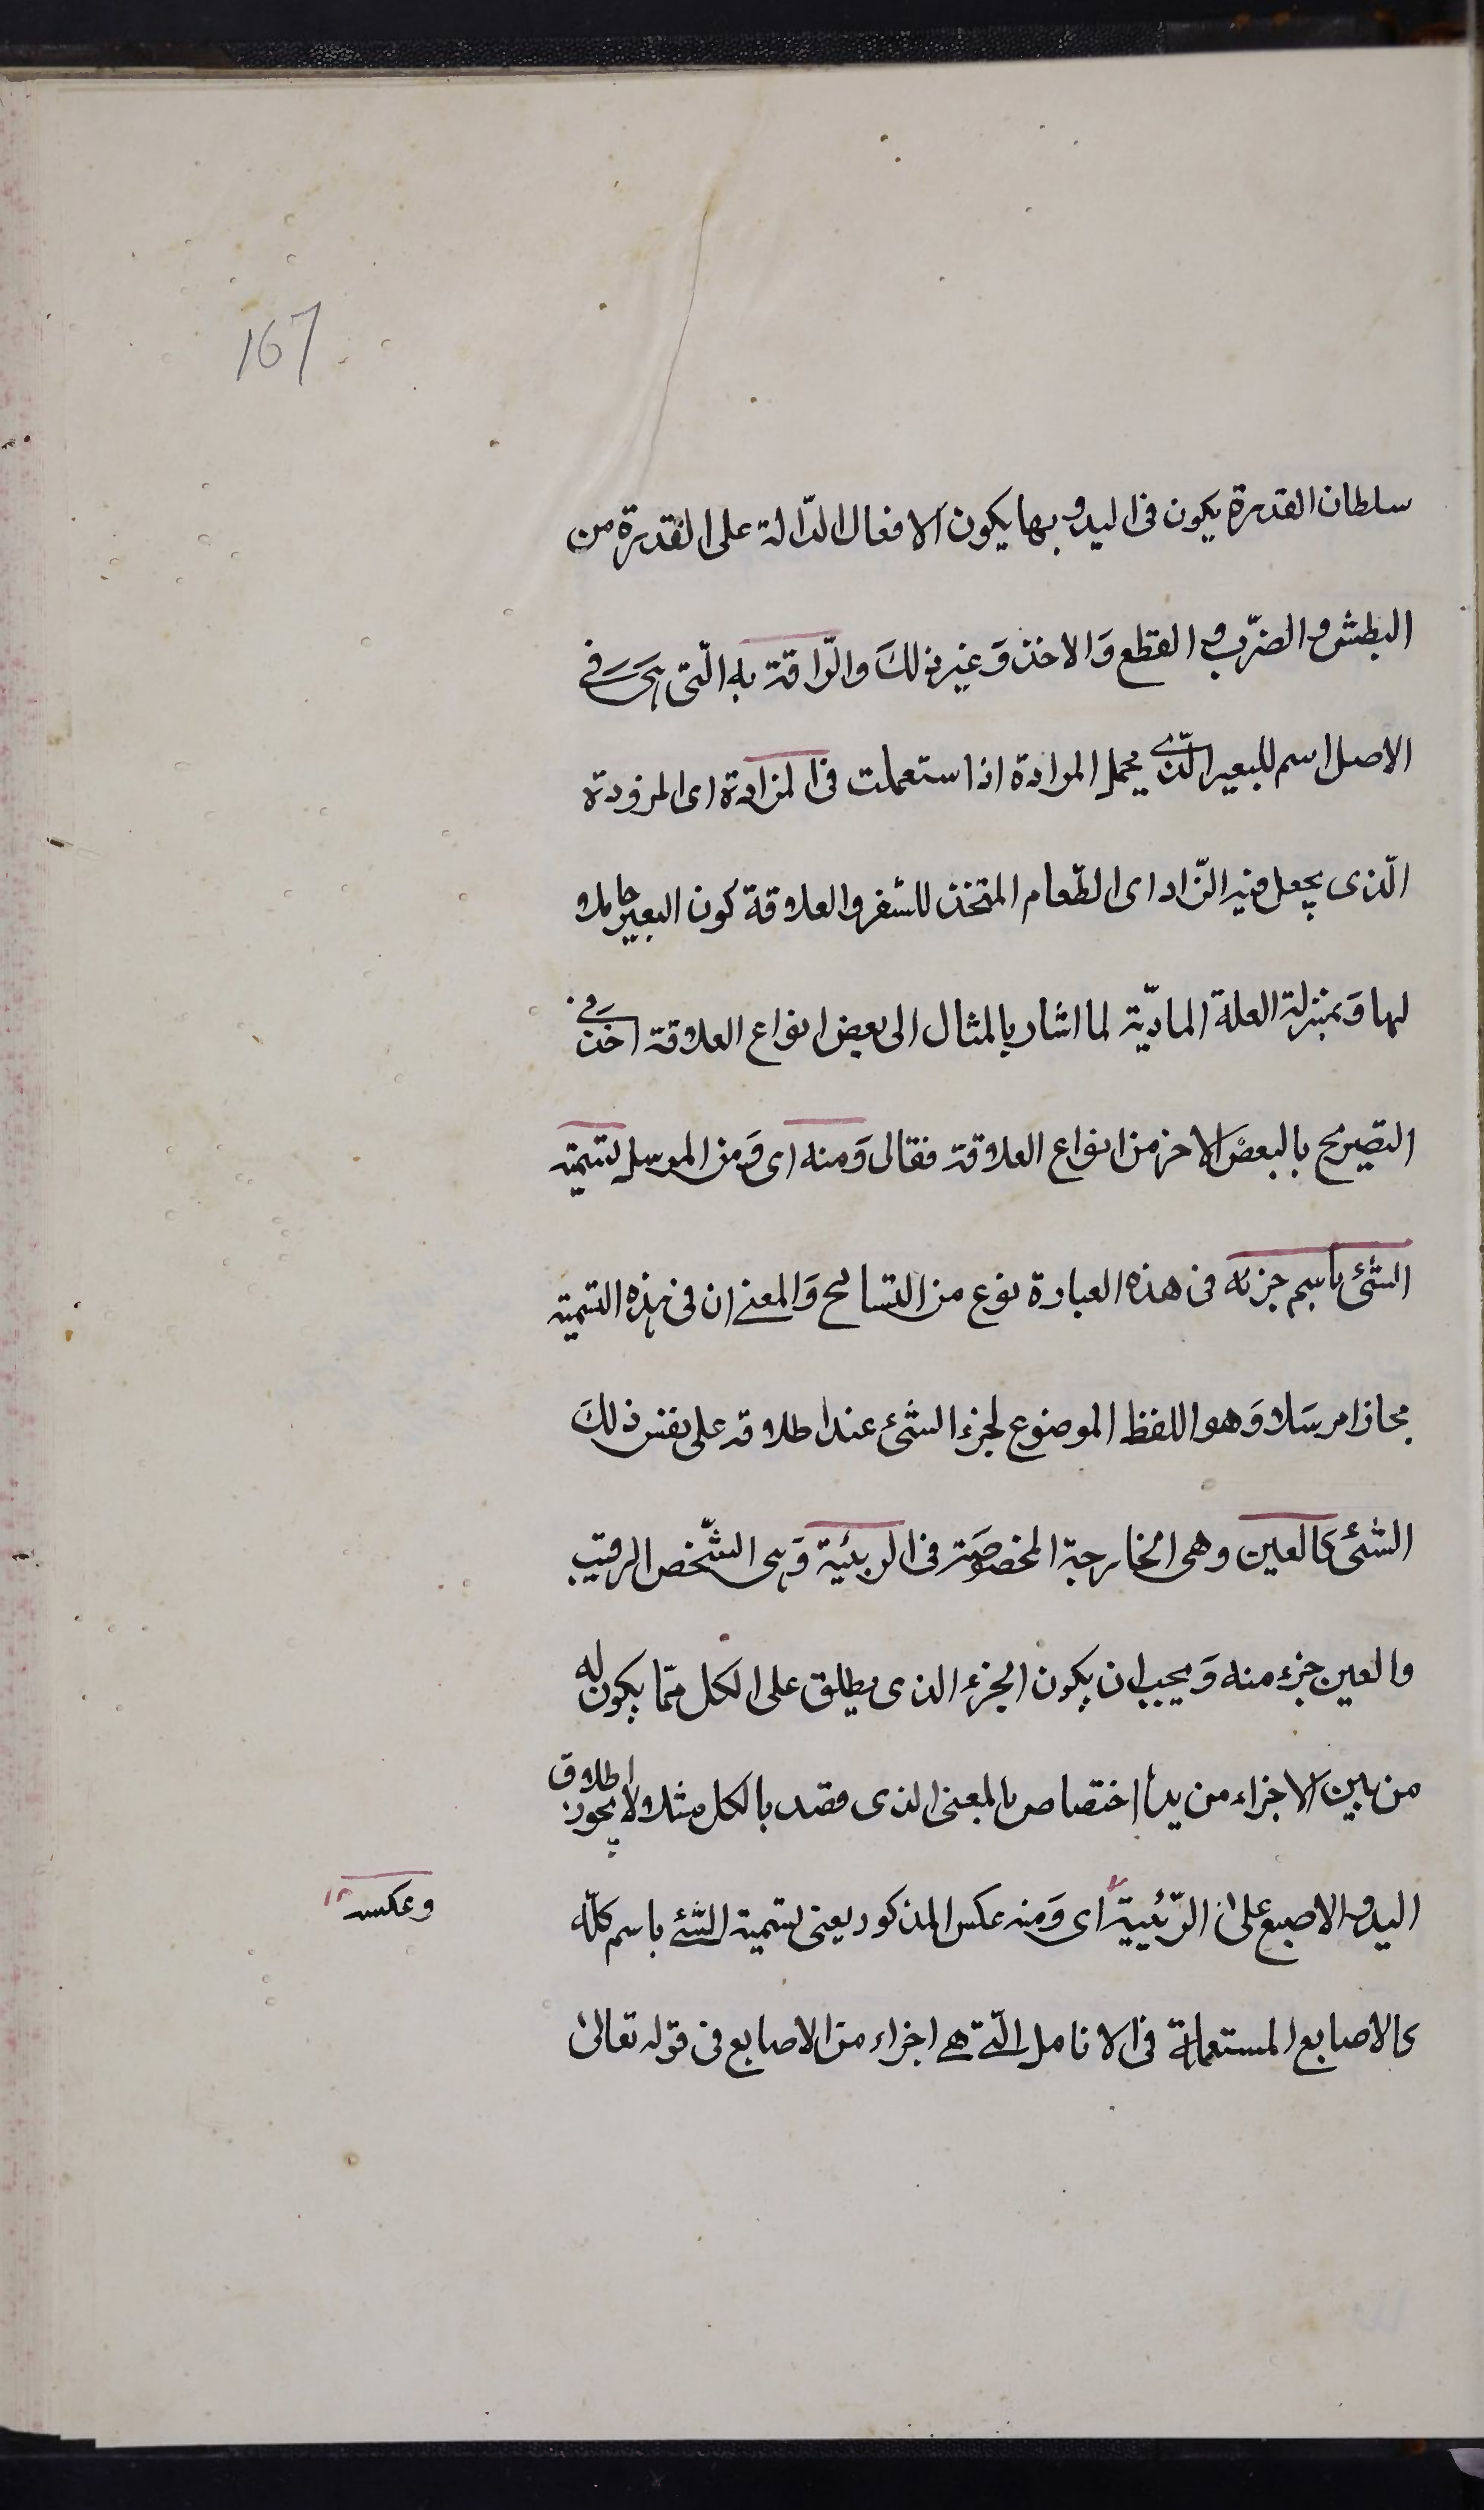 167
سلطان القدرة يكون في اليد و بها يكون الافعال الدّالة على القدرة من
البطش و الضّرب و القطع وَالاخذ وَغير ذلكَ والرّاوية به الّتى هى فى
الاصل اسم للبعير الّذى يحمل المزادة اذا ستعملت فى المزادة اى المزودة
الّذى يجعل فيه الزّاد اى الطّعام المتخذ للسّفر والعلاقة كون البعير حاملا
لها وَبمنزلة العلة المادّية لما اشار بالمثال الى بعض انواع العلاقة اخذ فى
التصريح بالبعض الاخر من انواع العلاقة فقال وَمنه اى وَمن المرسل تسمية
الشّئ باسم جزئه فى هذه العبارة نوع من التسامح وَالمعنى ان فى هذه التسمية
مجازا مرسَلا وَهو اللفظ الموضوع لجزء الشّئ عند اطلاقه على نفس ذلكَ
الشّئ كالعين وهى الجارحة المخصوصَة فى الربئية وَهى الشّخص الرقيب
والعين جزء منه وَيجب ان يكون الجزء الذى يطلق على الكل ممّا يكون له
من بين الاجزاء من يد اختصاص بالمعنى الذى قصد بالكل مثلا لا يجوز اطلاق
اليد و الاصبع على الرّئيية اى وَمنه عكس المذكور يعنى تسمية الشّئ باسم كلّه
وعكسه
كالاصابع المستعملة فى الانامل الّتى هى اجزاء من الاصابع فى قوله تعالىٰ